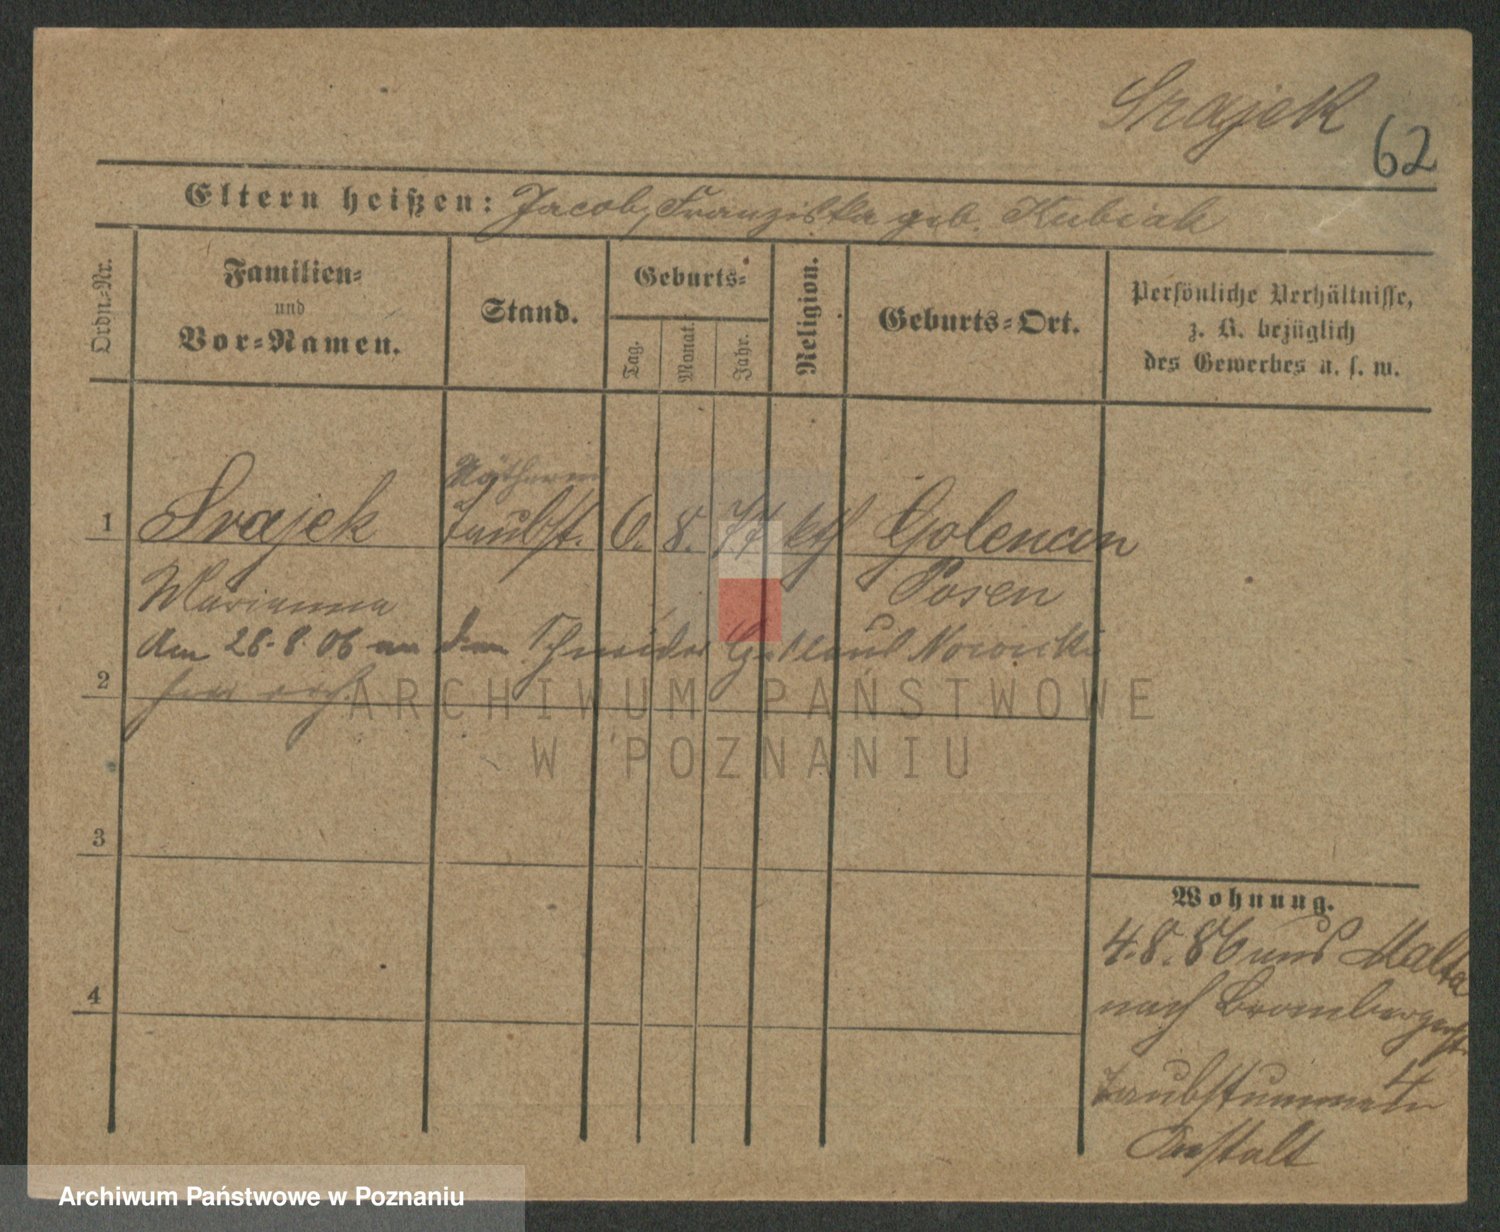 Srajek
62
Eltern heißen: Jacob, Franziska geb. Kubiak
Ordn.-Nr.
Familien-
und
Vor-Namen.
Stand.
Geburts-
Tag.
Monat.
Jahr.
Religion.
Geburts-Ort.
Persönliche Verhältnisse,
z. B. bezüglich
des Gewerbes u. s. w.
Nätherin
1 Srajek Taubst. 6. 8. 77 kth Golencin
Marianna Posen
den 28.8.06 an den Schneider Gottlieb Nowicki
2
3
4
Wohnung.
4.8.86 aus Malta
nach Brombergerst.
4
Taubstummen
Anstalt
ARCHIWUM PAŃSTWOWE
W POZNANIU
Archiwum Państwowe w Poznaniu